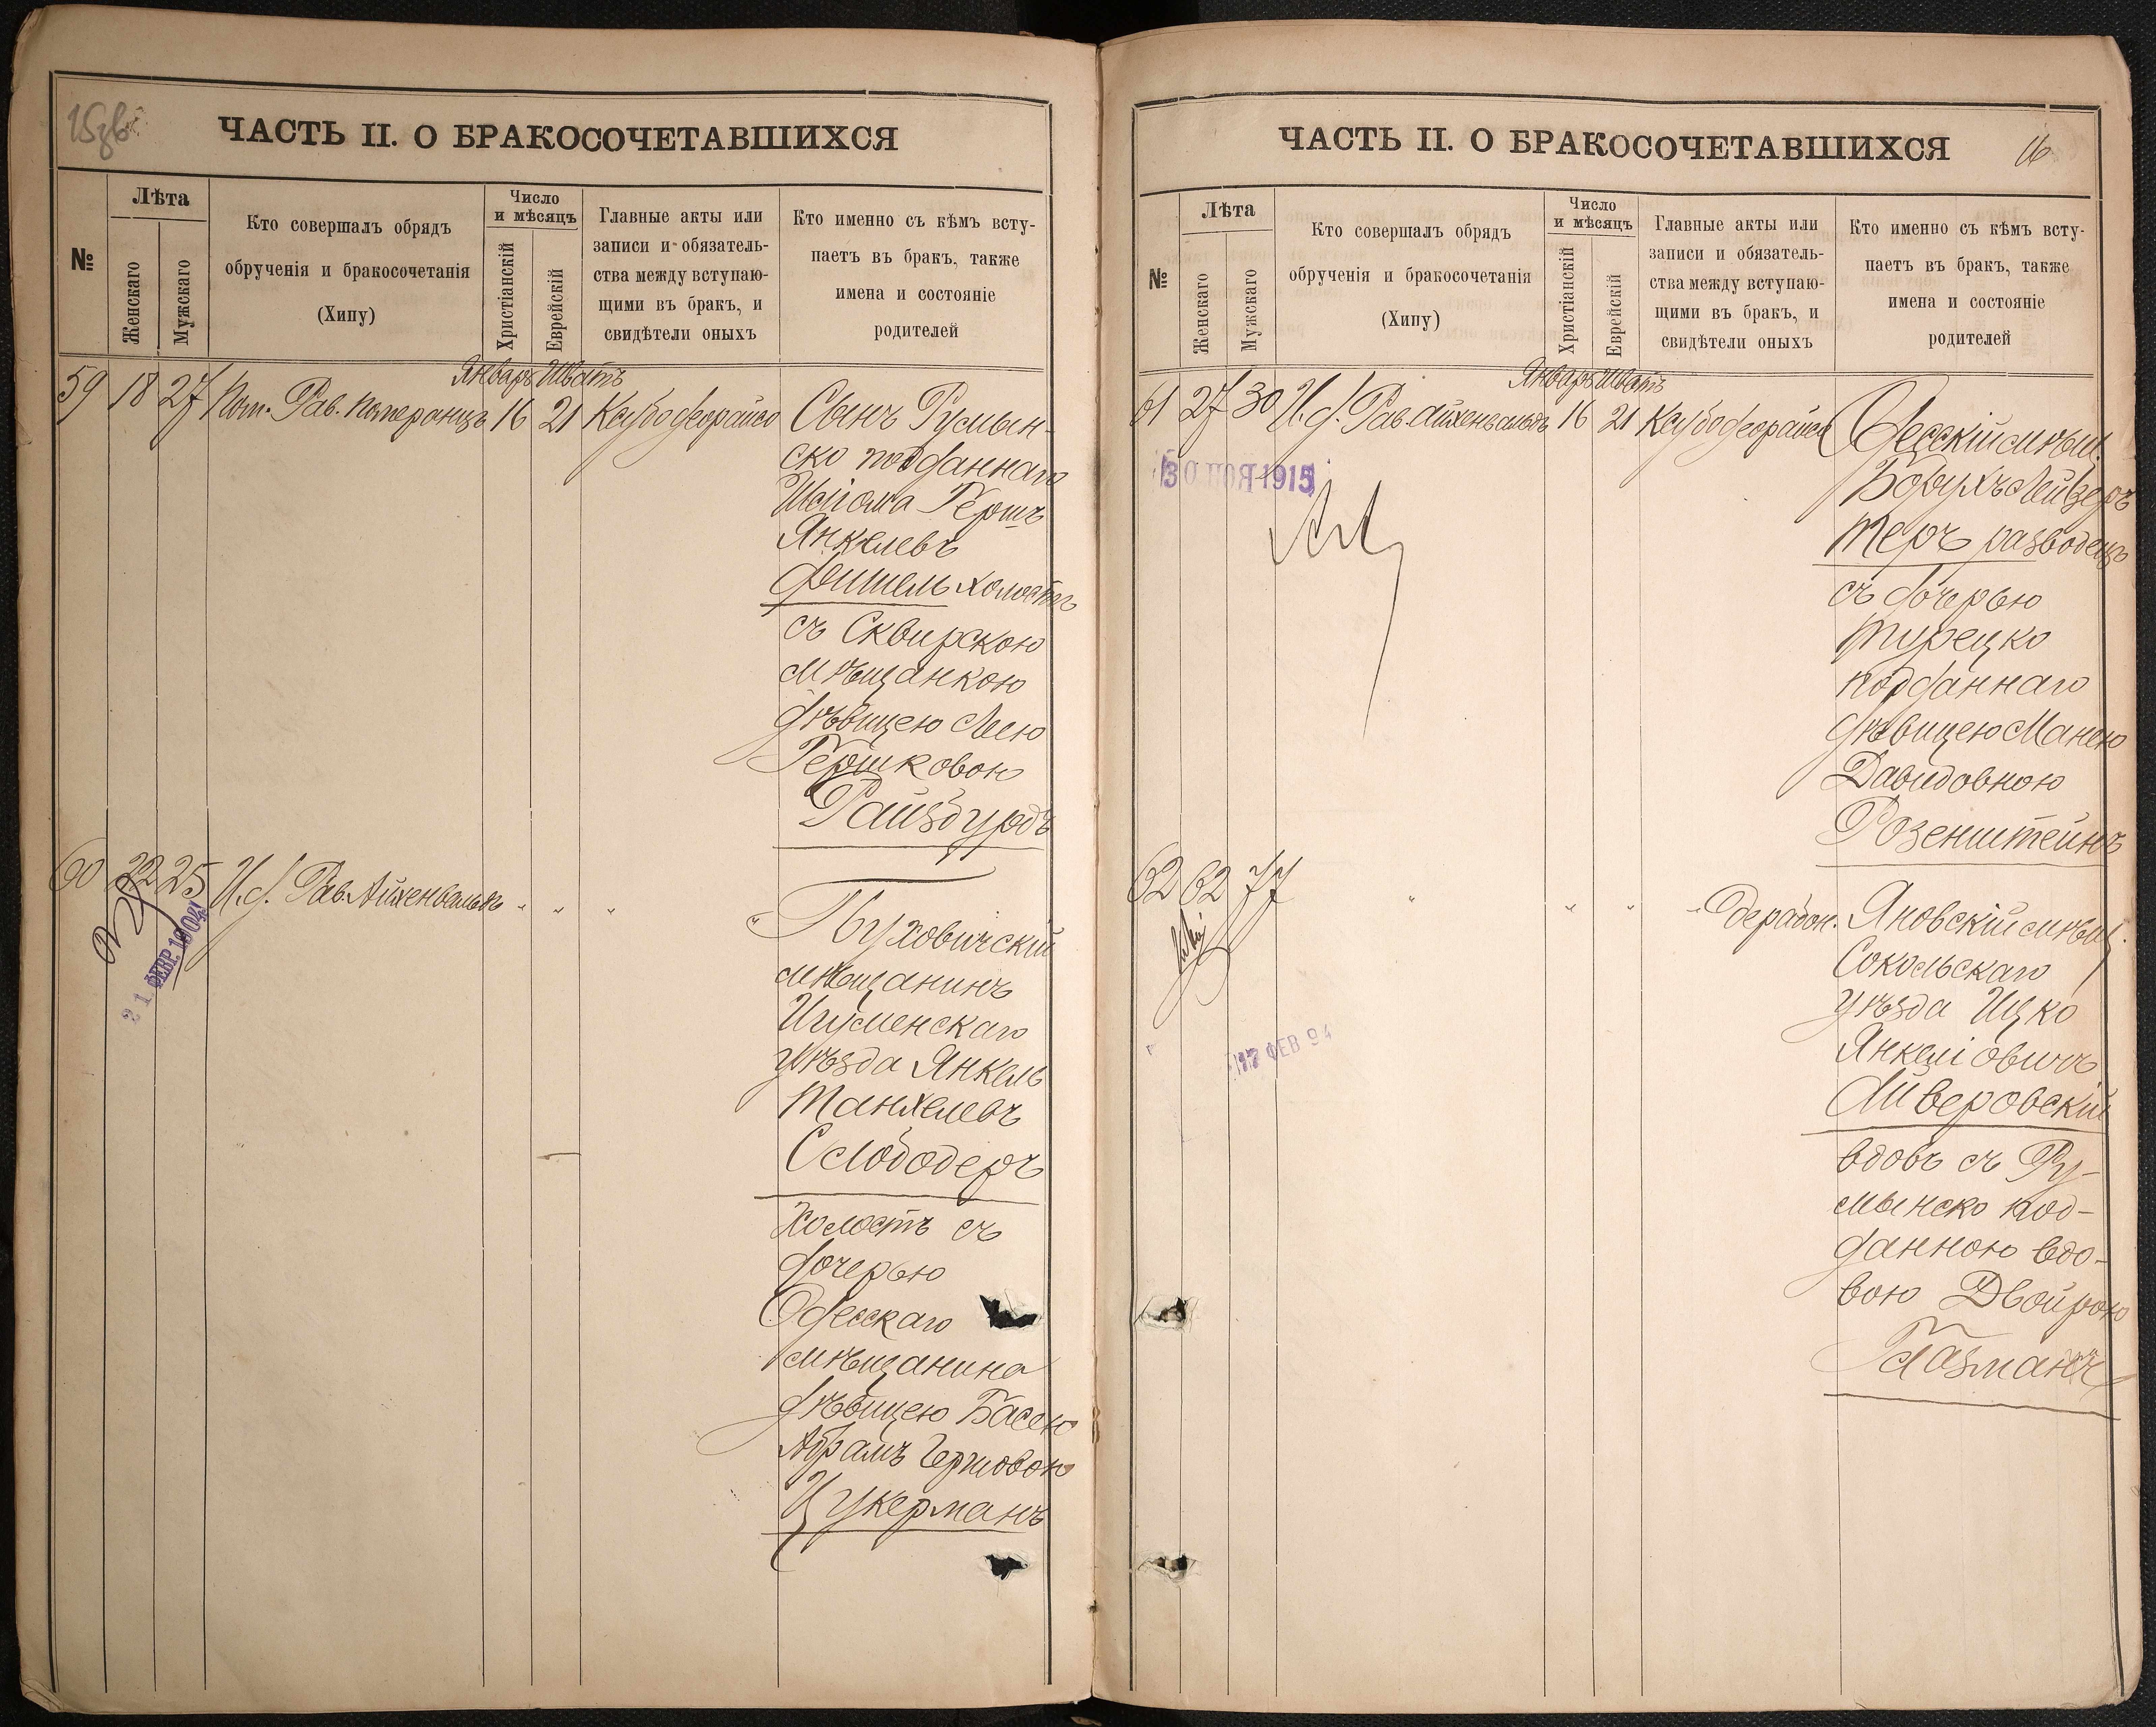 15 об.
ЧАСТЬ II. О БРАКОСОЧЕТАВШИХСЯ
№
Лѣта
Женскаго
Мужскаго
Кто совершалъ обрядъ
обрученія и бракосочетанія
(Хипу)
Число
и мѣсяцъ
Христіанскій
Еврейскій
Главные акты или
записи и обязатель-
ства между вступаю-
щими въ бракъ, и
свидѣтели оныхъ
Кто именно съ кѣмъ всту-
паетъ въ бракъ, также
имена и состояніе
родителей
Январь Шватъ
59 18 27 Пом. Рав. Померанцъ 16 21
Сынъ Румын-
ско подданнаго
Шлiома Гершъ
Янкелевъ
Фишель холостъ
съ Сквирскою
мѣщанкою
дѣвицею Леею
Гершковою
Райзбурдъ
60 22 25 И. д. Рав. Айхенвальдъ " " "
21 ФЕВР. 1904
" Пуховичскій
мѣщанинъ
Игуменскаго
уѣзда Янкель
Танхелевъ
Слободеръ
холостъ съ
дочерью
Одесскаго
мѣщанина
дѣвицею Басею
Абрамъ Гершовою
Цукерманъ
ЧАСТЬ II. О БРАКОСОЧЕТАВШИХСЯ
16
№
Лѣта
Женскаго
Мужскаго
Кто совершалъ обрядъ
обрученія и бракосочетанія
(Хипу)
Число
и мѣсяцъ
Христіанскій
Еврейскій
Главные акты или
записи и обязатель-
ства между вступаю-
щими въ бракъ, и
свидѣтели оныхъ
Кто именно съ кѣмъ всту-
паетъ въ бракъ, также
имена и состояніе
родителей
Январь Шватъ
61 27 30 И. д. Рав. Айхенвальдъ 16 21
30 НОЯ 1915
Одесскій мѣщ.
Борухъ Лейзеръ
Теръ разводецъ
съ дочерью
турецко
подданнаго
дѣвицею Манею
Давидовною
Розенштейнъ
62 62 77 " " "
17 ФЕВ 94
Яновскій мѣщ.
Сокольскаго
уѣзда Ицко
Янкеліовичъ
Айверовскій
вдовъ съ Ру-
мынско под-
данною вдо-
вою Двойрою
Глазманъ